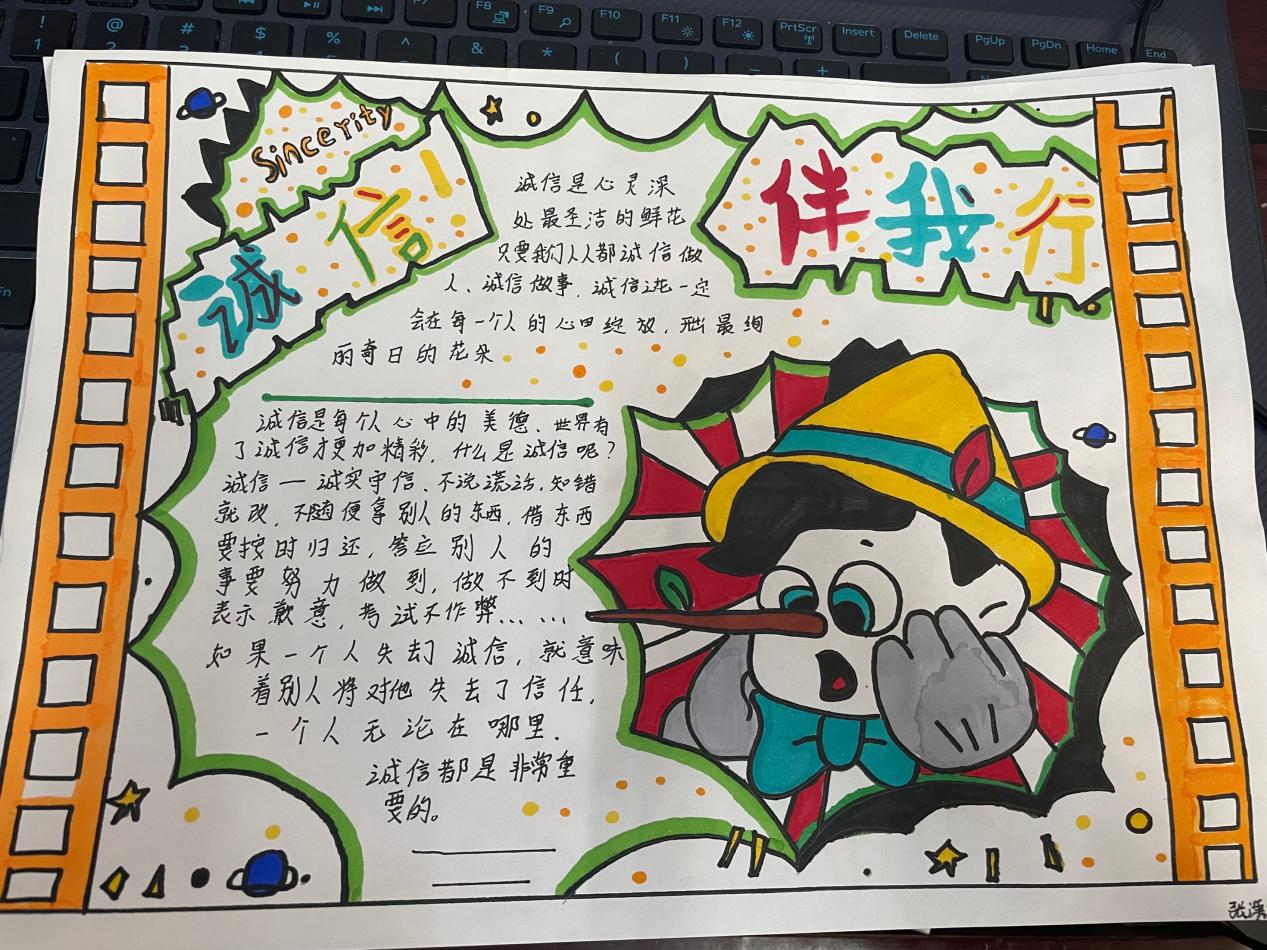 Sincerity
诚信!
伴我行
诚信是心灵深
处最圣洁的鲜花
只要我们人人都诚信做
人、诚信做事,诚信之花一定
会在每一个人的心田绽放,开出最绚
丽奇日的花朵
诚信是每个人心中的美德、世界有
了诚信才更加精彩,什么是诚信呢?
诚信一诚实守信、不说谎话,知错
就改,不随便拿别人的东西,借东西
要按时归还,答应别人的
事要努力做到,做不到时
表示歉意,考试不作弊……
如果一个人失去了诚信,就意味
着别人将对他失去了信任,
一个人无论在哪里.
诚信都是非常重
要的。
F8
F9
F10
F11
F12
PrtScr
Insert
Delete
PgUp
PgDn
Home
End
Fn